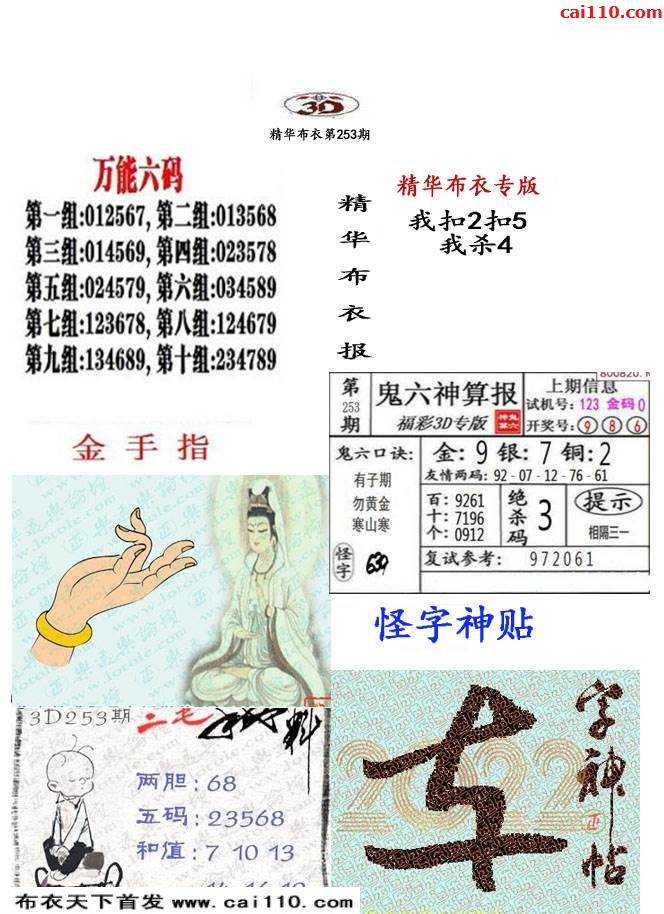 cai110.com
3D
精华布衣第253期
万能六码
第一组:012567, 第二组:013568
第三组:014569, 第四组:023578
第五组:024579, 第六组:034589
第七组:123678, 第八组:124679
第九组:134689, 第十组:234789
金手指
精华布衣报
精华布衣专版
我扣2扣5
我杀4
第253期
鬼六神算报
福彩3D专版
上期信息
试机号: 123 金码0
开奖号: 9 8 6
鬼六口诀:
有子期
勿黄金
寒山寒
怪字
金: 9 银: 7 铜: 2
友情两码: 92-07-12-76-61
百: 9261
十: 7196
个: 0912
绝杀码 3
提示
相隔三一
复试参考: 972061
怪字神贴
字神帖
正
3D253期
两胆: 68
五码: 23568
和值: 7 10 13
布衣天下首发 www.cai110.com